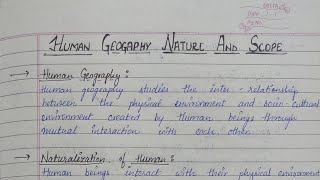 HUMAN GEOGAPHY NATURE AND SCOPE
→ Human Geography :
Human geography studies the inter-relationship
between the physical environment and socio-cultural
environment created by Human beings through
mutual interaction with each other.
→ Naturalization of Human :
Human beings interact with their physical environment